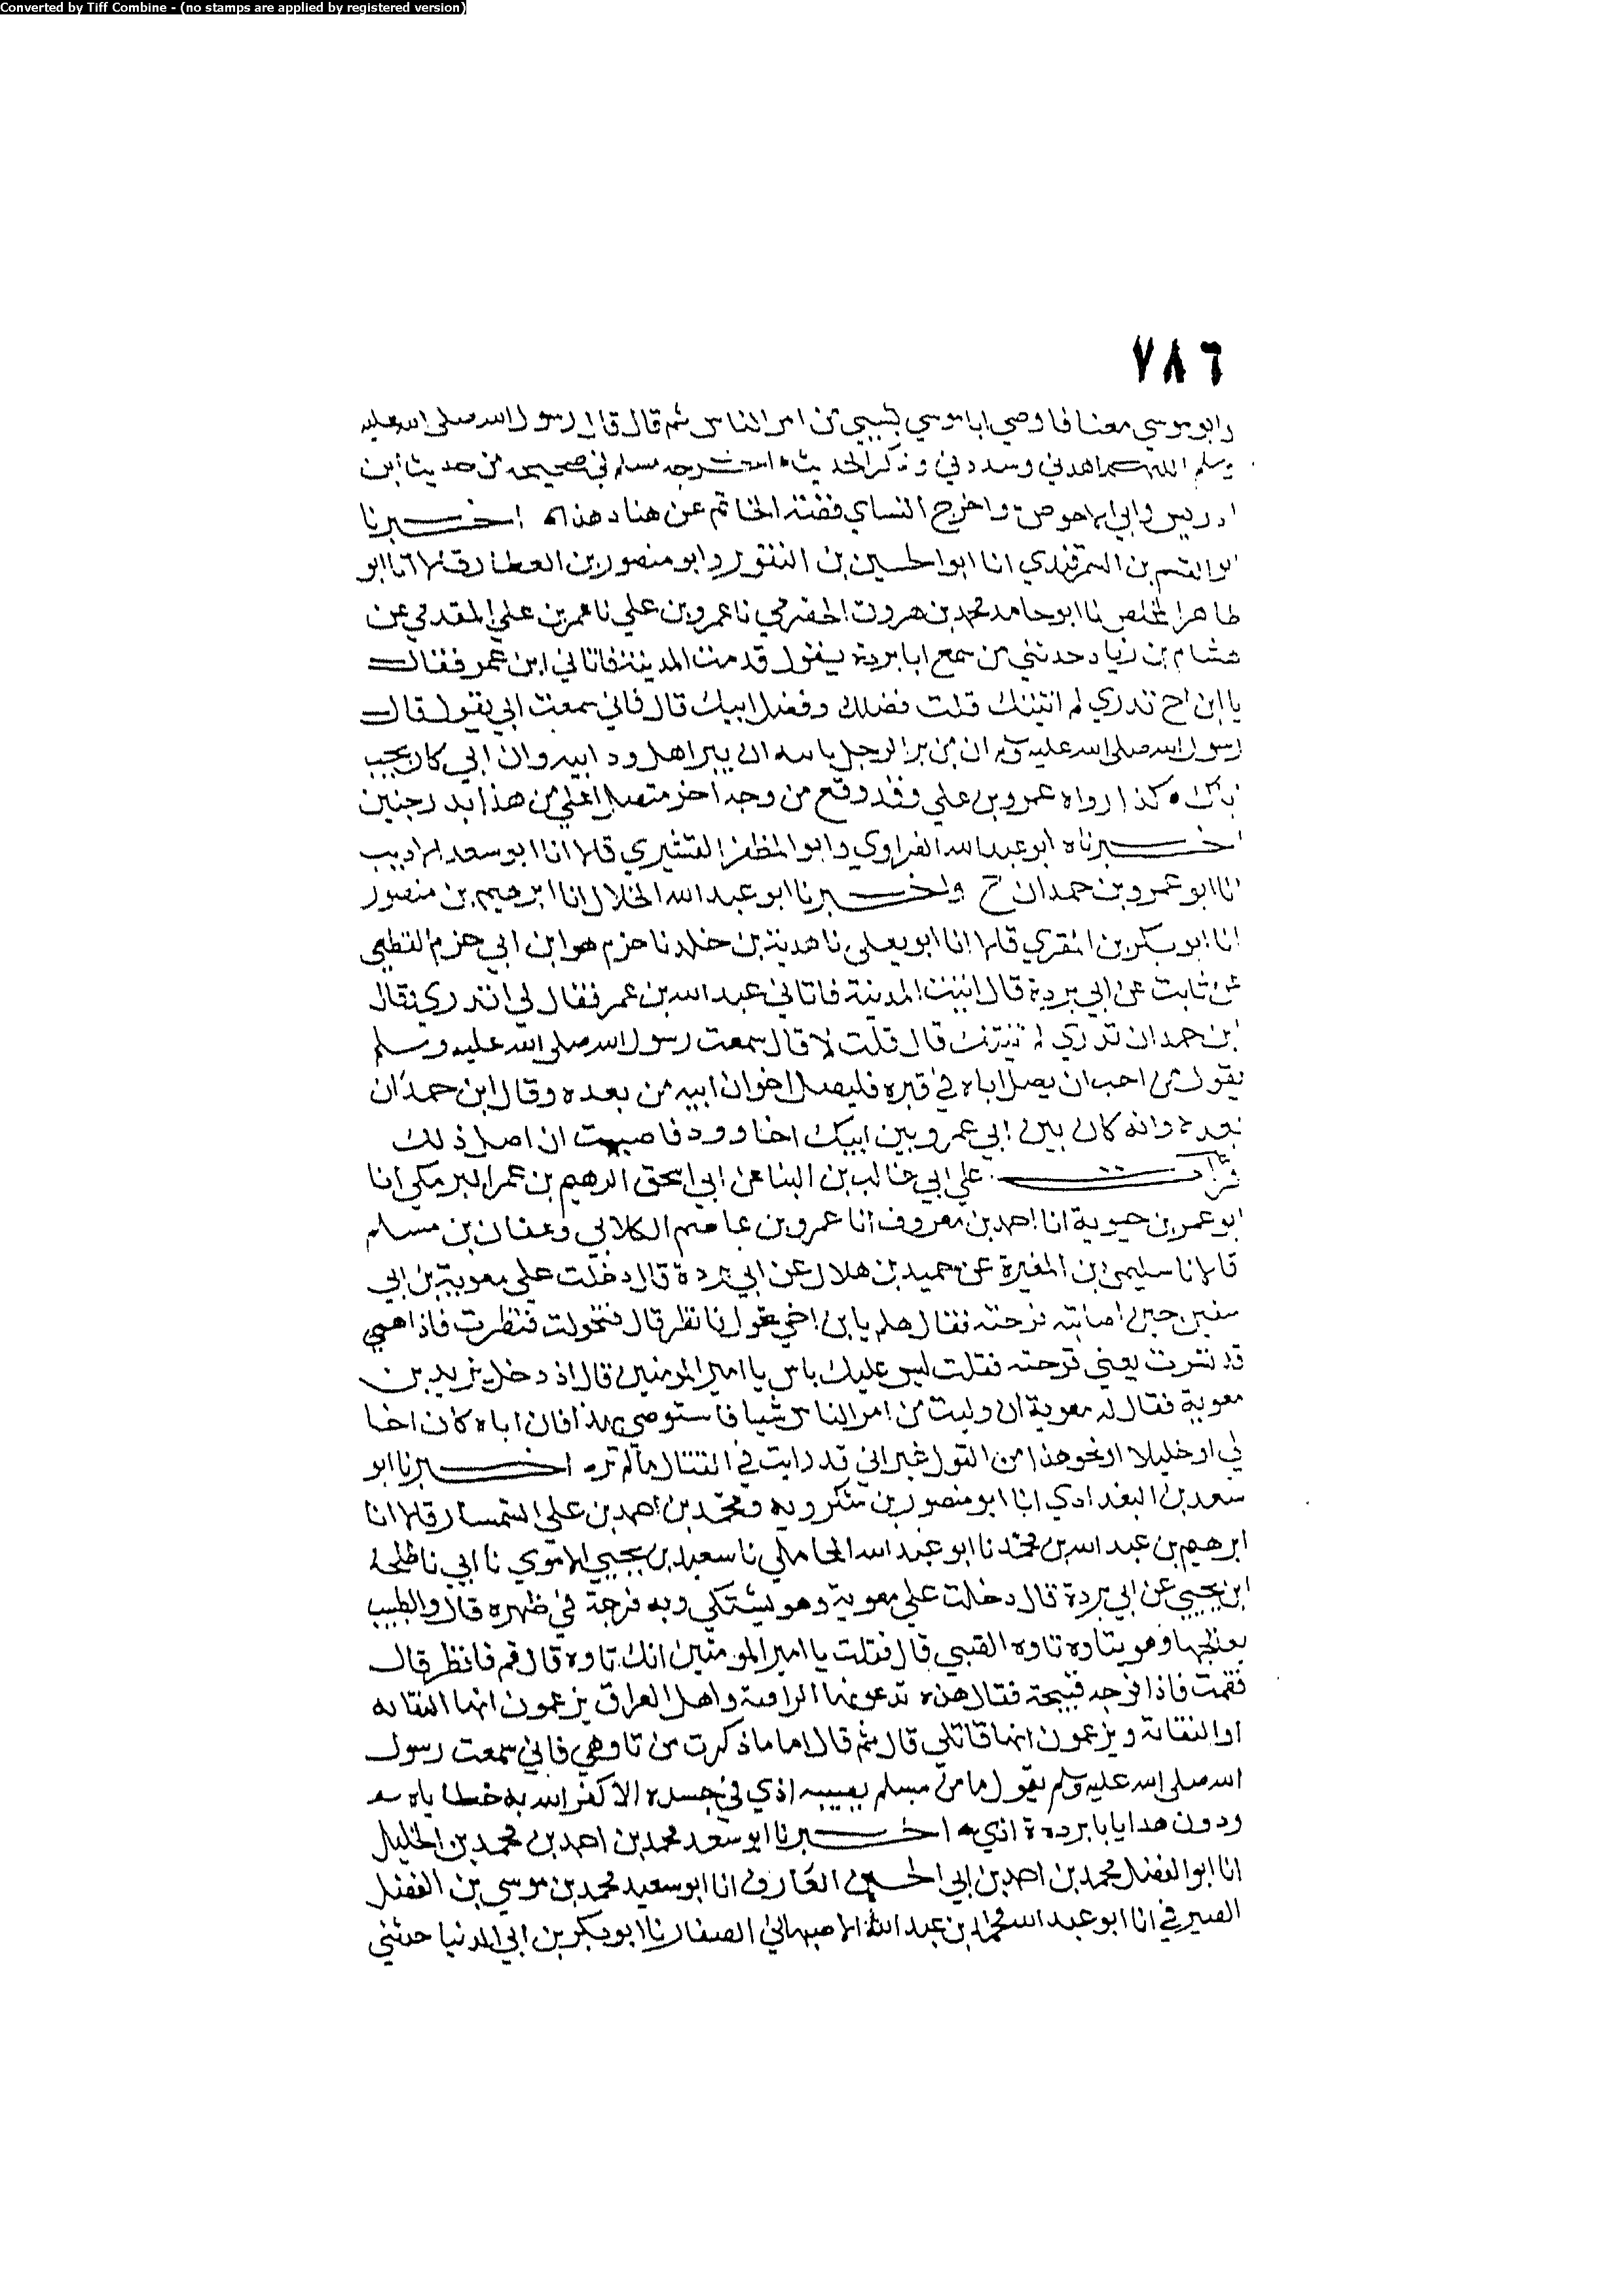 Converted by Tiff Combine - (no stamps are applied by registered version)
٧٨٦
وابو موسي معنا فاوصي ابا موسي بشيي من امر الناس ثم قال قال رسول الله صلى الله عليه
وسلم اللهم اهدني وسددني وذكر الحديث اخرجه مسلم في صحيحه من حديث ابن
ادريس وابي الاحوص واخرج النساي قصة الخاتم عن هناد هذا اخبرنا
ابو القسم بن السمرقندي انا ابو الحسين بن النقور وابو منصور بن العطار قالا انا ابو
طاهر المخلص نا ابو حامد محمد بن هرون الحضرمي نا عمرو بن علي نا عمر بن علي المقدمي عن
هشام بن زياد حدثني من سمع ابا بردة يقول قدمت المدينة فاتاني ابن عمر فقال
يا ابن اخ تدري لم اتيتك قلت فضلك وفضل ابيك قال فاني سمعت ابي يقول قال
رسول الله صلى الله عليه وسلم ان من بر الرجل باباه ان يبر اهل ود ابيه وان ابي كان يحب
اباك كذا رواه عمرو بن علي وقد وقع من وجه اخر متصل اعلي من هذا بدرجتين
اخبرناه ابو عبد الله الفراوي وابو المظفر القشيري قالا انا ابو سعد الاديب
انا ابو عمرو بن حمدان ح واخبرنا ابو عبد الله الخلال انا ابرهيم بن منصور
انا ابو بكر بن المقري قالا انا ابو يعلى نا هدبة بن خلد نا حزم هو ابن ابي حزم القطعي
عن ثابت عن ابي بردة قال اتيت المدينة فاتاني عبد الله بن عمر فقال لي اتدري وقال
ابن حمدان تدري لم اتيتك قال قلت لا قال سمعت رسول الله صلى الله عليه وسلم
يقول من احب ان يصل اباه في قبره فليصل اخوان ابيه من بعده وقال ابن حمدان
بعده وانه كان بين ابي عمر وبين ابيك اخا وود فاحببت ان اصل ذلك
قرات علي ابي غالب بن البنا عن ابي اسحق ابرهيم بن عمر البرمكي انا
ابو عمر بن حيوية انا احمد بن معروف انا عمرو بن عاصم الكلابي وعفان بن مسلم
قالا نا سليمن بن المغيرة عن حميد بن هلال عن ابي بردة قال دخلت علي معوية بن ابي
سفين حين اصابته قرحته فقال هلم يا بن اخي تحول فانظر قال فتحولت فنظرت فاذا هي
قد نشرت يعني قرحته فقلت ليس عليك باس يا امير المومنين قال اذ دخل يزيد بن
معوية فقال له معوية ان وليت من امر الناس شيا فاستوصي بهذا فان اباه كان اخا
لي او خليلا او نحو هذا من القول غير اني قد رايت في القتال ما لم تر اخبرنا ابو
سعد بن البغدادي انا ابو منصور بن شكرويه ومحمد بن احمد بن علي السمسار قالا انا
ابرهيم بن عبد الله بن محمد نا ابو عبد الله المحاملي نا سعيد بن يحيي الاموي نا ابي نا طلحة
ابن يحيي عن ابي بردة قال دخلت علي معوية وهو يشتكي وبه قرحة في ظهره قال والطبيب
يعالجها وهو يتاوه تاوه الصبي قال فقلت يا امير المومنين انك تاوه قال قم فانظر قال
فقمت فاذا قرحه قبيحة فقال هذه تدعونها الراقبة واهل العراق يزعمون انها النقابه
او النقابة ويزعمون انها قاتلي قال ثم قال اما ما ذكرت من تاوهي فاني سمعت رسول
الله صلى الله عليه وسلم يقول ما من مسلم يصيبه اذي في جسده الا كفر الله به خطاياه
ودون هذا يا با بردة اذي اخبرنا ابو سعد محمد بن احمد بن محمد بن الخليل
انا ابو الفضل محمد بن احمد بن ابي الحسين العارف انا ابو سعيد محمد بن موسي بن الفضل
الصيرفي انا ابو عبد الله محمد بن عبد الله الاصبهاني الصفار نا ابو بكر بن ابي الدنيا حدثني